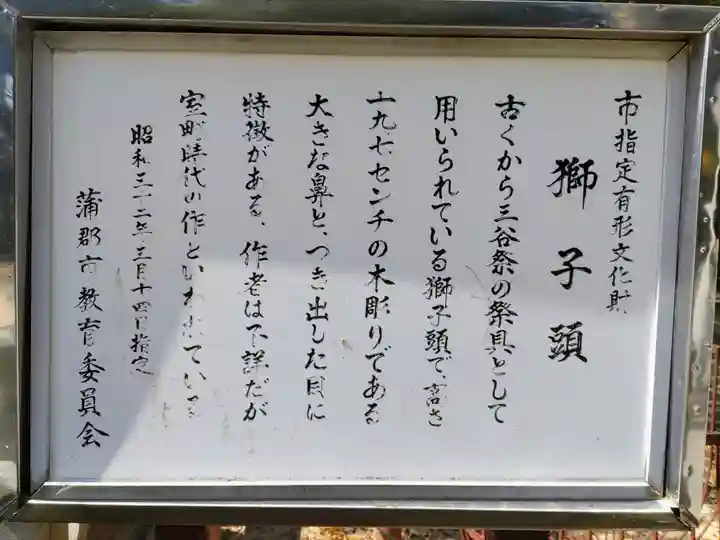 市指定有形文化財
獅子頭
古くから三谷祭の祭具として
用いられている獅子頭で、高さ
一九・七センチの木彫りである
大きな鼻と、つき出した目に
特徴がある、作者は不詳だが
室町時代の作といわれている
昭和三十二年三月十四日指定
蒲郡市教育委員会